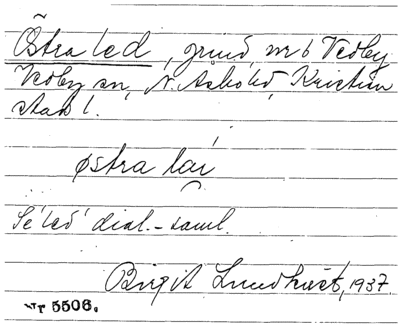 Östra led, grind, nr 6 Vedby
Vedby sn, N. Åsbo hd, Kristian
stads l.
østra laị
Se 'led' dial.-saml.
Birgit Lundkvist, 1937.
Nr 5506.